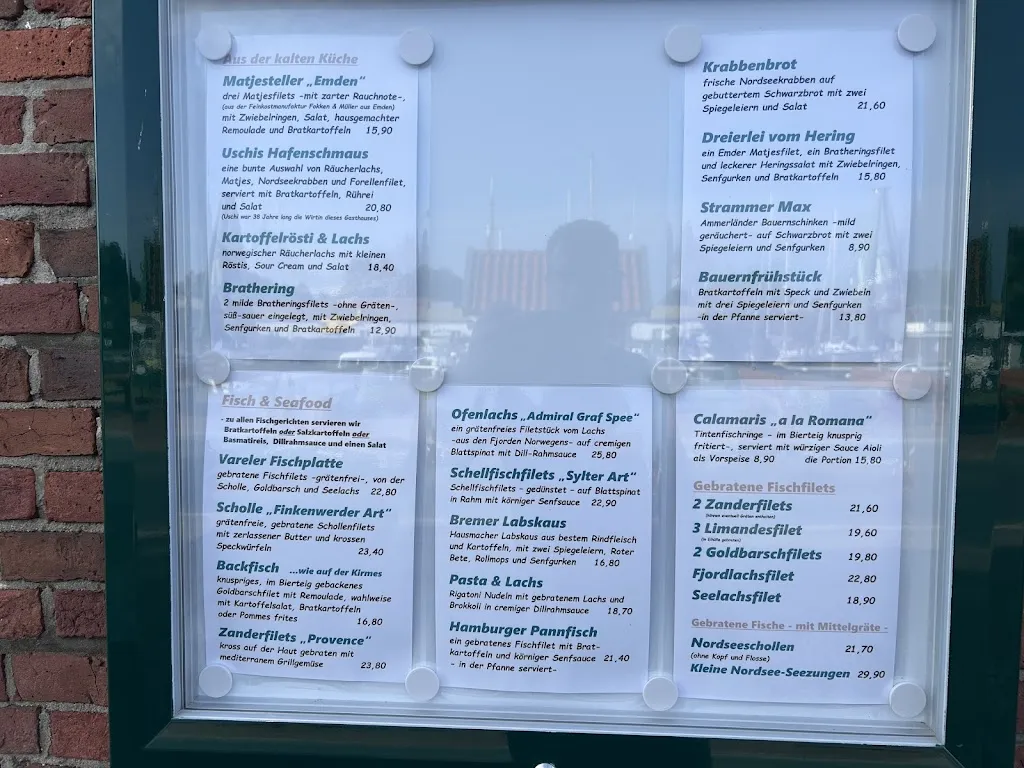 Aus der kalten Küche
Matjesteller „Emden"
drei Matjesfilets -mit zarter Rauchnote-,
(aus der Feinkostmanufaktur Fokken & Müller aus Emden)
mit Zwiebelringen, Salat, hausgemachter
Remoulade und Bratkartoffeln 15,90
Uschis Hafenschmaus
eine bunte Auswahl von Räucherlachs,
Matjes, Nordseekrabben und Forellenfilet,
serviert mit Bratkartoffeln, Rührei
und Salat 20,80
(Uschi war 38 Jahre lang die Wirtin dieses Gasthauses)
Kartoffelrösti & Lachs
norwegischer Räucherlachs mit kleinen
Röstis, Sour Cream und Salat 18,40
Brathering
2 milde Bratheringsfilets -ohne Gräten-,
süß-sauer eingelegt, mit Zwiebelringen,
Senfgurken und Bratkartoffeln 12,90
Krabbenbrot
frische Nordseekrabben auf
gebuttertem Schwarzbrot mit zwei
Spiegeleiern und Salat 21,60
Dreierlei vom Hering
ein Emder Matjesfilet, ein Bratheringsfilet
und leckerer Heringssalat mit Zwiebelringen,
Senfgurken und Bratkartoffeln 15,80
Strammer Max
Ammerländer Bauernschinken -mild
geräuchert- auf Schwarzbrot mit zwei
Spiegeleiern und Senfgurken 8,90
Bauernfrühstück
Bratkartoffeln mit Speck und Zwiebeln
mit drei Spiegeleiern und Senfgurken
-in der Pfanne serviert- 13,80
Fisch & Seafood
- zu allen Fischgerichten servieren wir
Bratkartoffeln oder Salzkartoffeln oder
Basmatireis, Dillrahmsauce und einen Salat
Vareler Fischplatte
gebratene Fischfilets -grätenfrei-, von der
Scholle, Goldbarsch und Seelachs 22,80
Scholle „Finkenwerder Art"
grätenfreie, gebratene Schollenfilets
mit zerlassener Butter und krossen
Speckwürfeln 23,40
Backfisch ...wie auf der Kirmes
knuspriges, im Bierteig gebackenes
Goldbarschfilet mit Remoulade, wahlweise
mit Kartoffelsalat, Bratkartoffeln
oder Pommes frites 16,80
Zanderfilets „Provence"
kross auf der Haut gebraten mit
mediterranem Grillgemüse 23,80
Ofenlachs „Admiral Graf Spee"
ein grätenfreies Filetstück vom Lachs
-aus den Fjorden Norwegens- auf cremigen
Blattspinat mit Dill-Rahmsauce 25,80
Schellfischfilets „Sylter Art"
Schellfischfilets - gedünstet - auf Blattspinat
in Rahm mit körniger Senfsauce 22,90
Bremer Labskaus
Hausmacher Labskaus aus bestem Rindfleisch
und Kartoffeln, mit zwei Spiegeleiern, Roter
Bete, Rollmops und Senfgurken 16,80
Pasta & Lachs
Rigatoni Nudeln mit gebratenem Lachs und
Brokkoli in cremiger Dillrahmsauce 18,70
Hamburger Pannfisch
ein gebratenes Fischfilet mit Brat-
kartoffeln und körniger Senfsauce 21,40
- in der Pfanne serviert-
Calamaris „a la Romana"
Tintenfischringe - im Bierteig knusprig
fritiert-, serviert mit würziger Sauce Aioli
als Vorspeise 8,90 die Portion 15,80
Gebratene Fischfilets
2 Zanderfilets 21,60
3 Limandesfilet 19,60
2 Goldbarschfilets 19,80
Fjordlachsfilet 22,80
Seelachsfilet 18,90
Gebratene Fische - mit Mittelgräte -
Nordseeschollen 21,70
(ohne Kopf und Flosse)
Kleine Nordsee-Seezungen 29,90